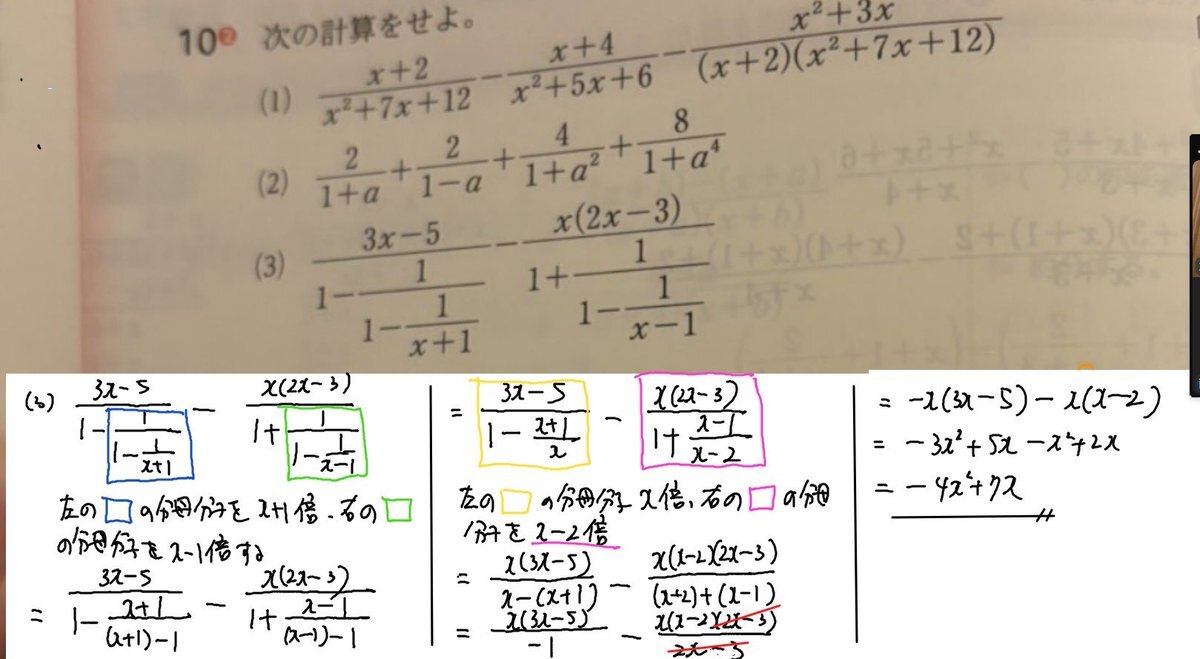 10 ② 次の計算をせよ。
(1) \frac{x+2}{x²+7x+12} - \frac{x+4}{x²+5x+6} - \frac{x²+3x}{(x+2)(x²+7x+12)}
(2) \frac{2}{1+a} + \frac{2}{1-a} + \frac{4}{1+a²} + \frac{8}{1+a⁴}
(3) \frac{3x-5}{1-\frac{1}{1-\frac{1}{x+1}}} - \frac{x(2x-3)}{1+\frac{1}{1-\frac{1}{x-1}}}
(3) \frac{3x-5}{1-\frac{1}{1-\frac{1}{x+1}}} - \frac{x(2x-3)}{1+\frac{1}{1-\frac{1}{x-1}}}
左の□の分母分子を x+1倍、右の□
の分母分子を x-1倍する
= \frac{3x-5}{1-\frac{x+1}{(x+1)-1}} - \frac{x(2x-3)}{1+\frac{x-1}{(x-1)-1}}
= \frac{3x-5}{1-\frac{x+1}{x}} - \frac{x(2x-3)}{1+\frac{x-1}{x-2}}
左の□の分母分子 x倍、右の□の分母
分子を x-2倍
= \frac{x(3x-5)}{x-(x+1)} - \frac{x(x-2)(2x-3)}{(x+2)+(x-1)}
= \frac{x(3x-5)}{-1} - \frac{x(x-2)(2x-3)}{2x-3}
= -x(3x-5) - x(x-2)
= -3x²+5x-x²+2x
= -4x²+7x